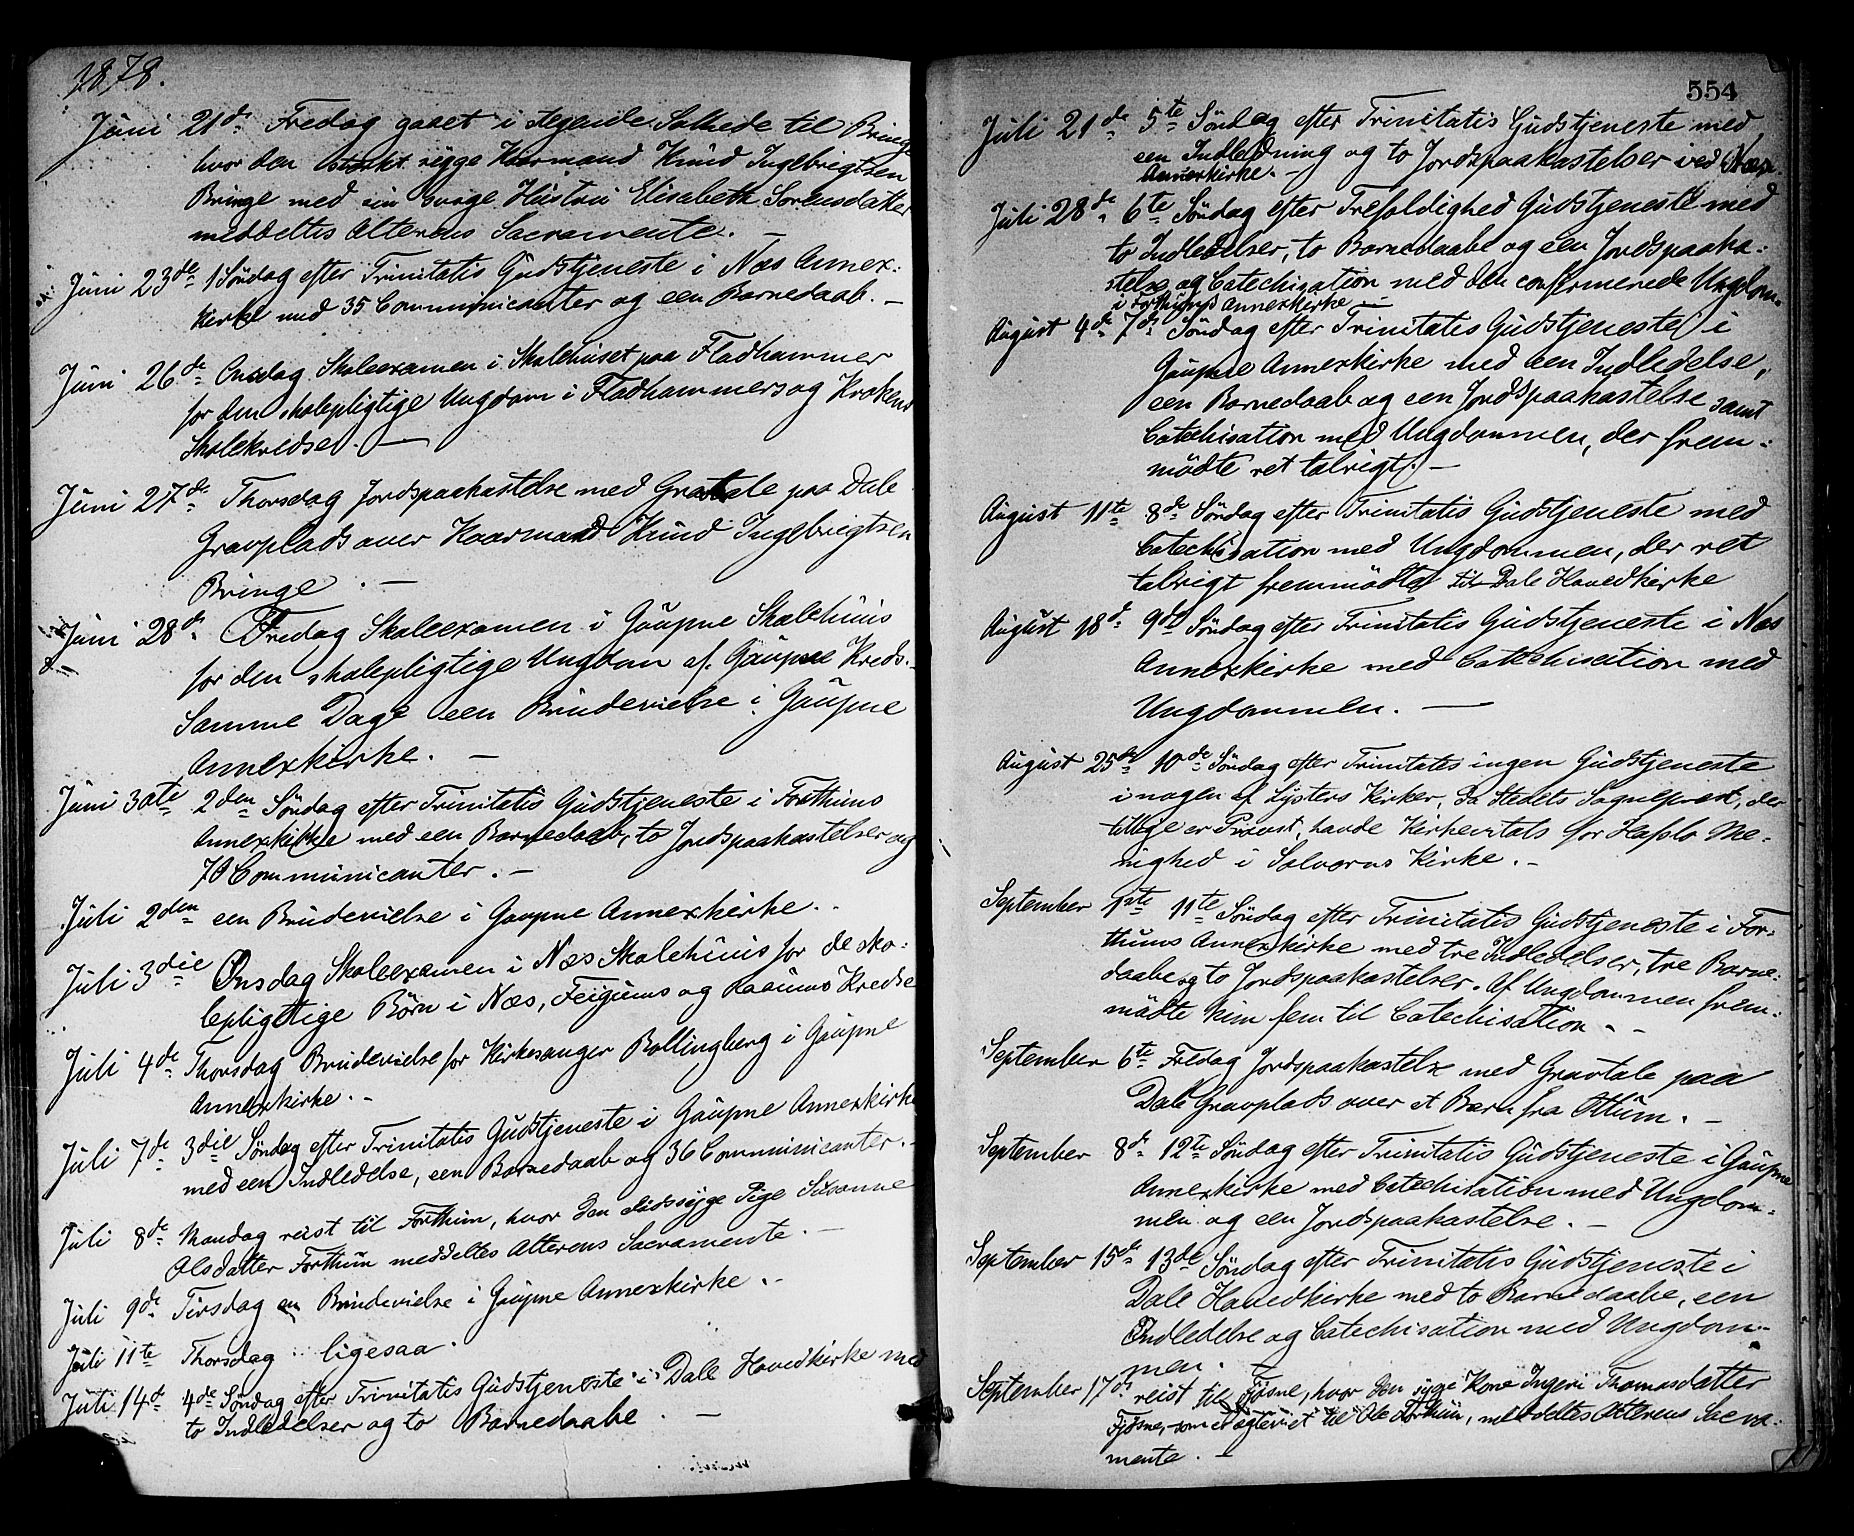 1878.
Juni 21de Fredag gaaet i øsende Sohede til Bringe
hvor den stærkt sygge Kaarmand Knud Ingebrigtsen
Bringe med sin svage Hustru Elisabeth Sørensdatter
meddeltes Alterens Sacramente. —
Juni 23de 1 Søndag efter Trinitatis Gudstjeneste i Næs Annex-
kirke med 35 Communicanter og een Barnedaab. —
Juni 26de Onsdag Skoleexamen i Skolehuset paa Fladhammer
for den skolepligtige Ungdom i Fladhammers og Krokens
Skolekredse. —
Juni 27de Thorsdag Jordspaakastelse med Gravtale paa Dale
Gravplads over Kaarmand Knud Ingebrigtsen
Bringe. —
Juni 28de Fredag Skoleexamen i Gaupne Skolehuus
for den skolepligtige Ungdom af Gaupne Kreds. —
Samme Dage een Brudevielse i Gaupne
Annexkirke. —
Juni 30te 2den Søndag efter Trinitatis Gudstjeneste i Forthuns
Annexkirke med een Barnedaab, to Jordspaakastelser og
70 Communicanter. —
Juli 2den een Brudevielse i Gaupne Annexkirke.
Juli 3die Onsdag Skoleexamen i Næs Skolehuus for de sko-
lepligtige Børn i Næs, Feigums og Raaums Kredse
Juli 4de Thorsdag Brudevielse for Kirkesanger Bollingberg i Gaupne
Annexkirke. —
Juli 7de 3die Søndag efter Trinitatis Gudstjeneste i Gaupne Annexkirke
med een Indledelse, een Barnedaab og 36 Communicanter. —
Juli 8de Mandag reist til Forthun, hvor den sidssyge Pige Susanne
Olsdatter Forthun meddeltes Alterens Sacramente. —
Juli 9de Tirsdag en Brudevielse i Gaupne Annexkirke. —
Juli 11te Thorsdag ligesaa.
Juli 14de 4de Søndag efter Trinitatis Gudstjeneste i Dale Hovedkirke med
to Indledelser og to Barnedaabe. —
554
Juli 21de 5te Søndag efter Trinitatis Gudstjeneste med
een Indledning og to Jordspaakastelser ved Næs
Annexkirke. —
Juli 28de 6te Søndag efter Trefoldighed Gudstjeneste med
to Indledelser, to Barnedaabe og een Jordspaaka-
stelse og Catechisation med den confirmerede Ungdom
i Forthuns Annexkirke —
August 4de 7de Søndag efter Trinitatis Gudstjeneste i
Gaupne Annexkirke med een Indledelse,
een Barnedaab og een Jordspaakastelse samt
Catechisation med Ungdommen, der frem-
mødte ret talrigt. —
August 11te 8de Søndag efter Trinitatis Gudstjeneste med
Catechisation med Ungdommen, der ret
talrigt fremmødte til Dale Hovedkirke
August 18de 9de Søndag efter Trinitatis Gudstjeneste i Næs
Annexkirke med Catechisation med
Ungdommen. —
August 25de 10de Søndag efter Trinitatis ingen Gudstjeneste
i nogen af Lysters Kirker, da Stedets Sogneprest, der
tillige er Provst, havde Kirkevisitats for Hafslo Me-
nighed i Solvorns Kirke. —
September 1ste 11te Søndag efter Trinitatis Gudstjeneste i For-
thuns Annexkirke med tre Indledelser, tre Barne-
daabe og to Jordspaakastelser. Af Ungdommen frem-
mødte kun fem til Catechisation. —
September 6te Fredag Jordspaakastelse med Gravtale paa
Dale Gravplads over et Barn fra Ottum. —
September 8de 12te Søndag efter Trinitatis Gudstjeneste i Gaupne
Annexkirke med Catechisation med Ungdom-
men og een Jordspaakastelse. —
September 15de 13de Søndag efter Trinitatis Gudstjeneste i
Dale Hovedkirke med to Barnedaabe, een
Indledelse og Catechisation med Ungdom-
men.
September 17de reist til Fjøsne, hvor den syge Kone Ingeri Thomasdatter
Fjøsne, som er i Ole Forthun, meddeltes Alterens Sacra-
mente. —